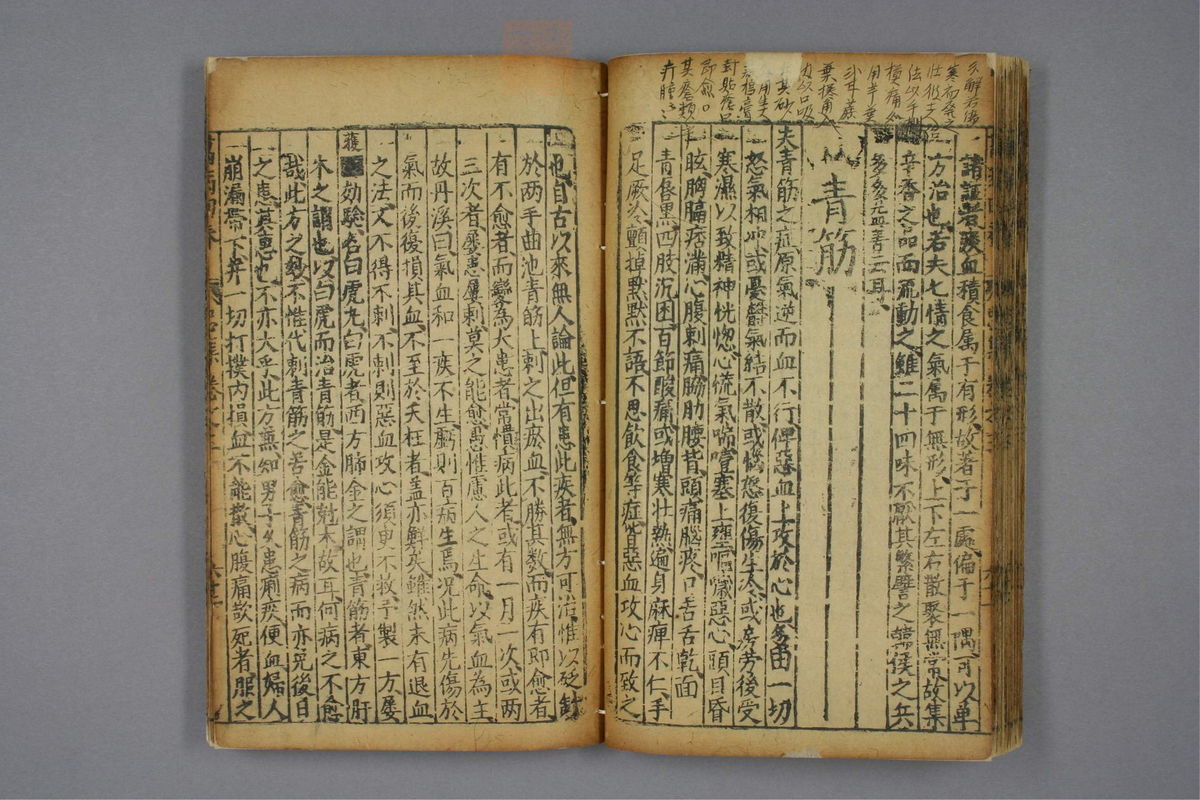 諸証若痰血積食属于有形故著于一處偏于一隅可以单
方治也若夫七情之氣属于無形上下左右散聚無常故集
辛香之品而流動之雖二十四味不厭其繁譬之諸侯之兵
多多亦益善云耳
青筋
夫青筋之症原氣逆而血不行俾惡血上攻於心也多由一切
怒氣相冲或憂欝氣結不散或惱怒復傷生冷或房劳後受
寒濕以致精神恍惚心慌氣喘噎塞上壅嘔噦惡心頭目昏
眩胸膈痞滿心腹刺痛脇肋腰背頭痛腦疼口苦舌乾面
青唇黑四肢沉困百節酸痛或增寒壮熱遍身麻痺不仁手
足厥冷顫掉默默不語不思飲食等症皆惡血攻心而致之
也自古以來無人論此但有患此疾者無方可治惟以砭針
於两手曲池青筋上刺之出瘀血不勝其数而疾有即愈者
有不愈者而變為大患者常憒病此者或有一月一次或两
三次者屡患屡刺莫之能愈葛惟慮人之生命以氣血為主
故丹溪曰氣血和一疾不生虧則百病生焉况此病先傷於
氣而後復損其血不至於夭枉者盖亦鮮矣雖然未有退血
之法又不得不刺不刺則惡血攻心須臾不救予製一方屡
獲効驗名曰白虎丸白虎者西方肺金之謂也青筋者東方肝
木之謂也以白虎而治青筋是金能尅木故耳何病之不愈
哉此方之製不惟代刺青筋之苦愈青筋之病而亦免後日
之患其惠也不亦大乎此方兼知男子久患痢疾便血婦人
崩漏帶下并一切打撲内損血不能散心腹痛欲死者服之